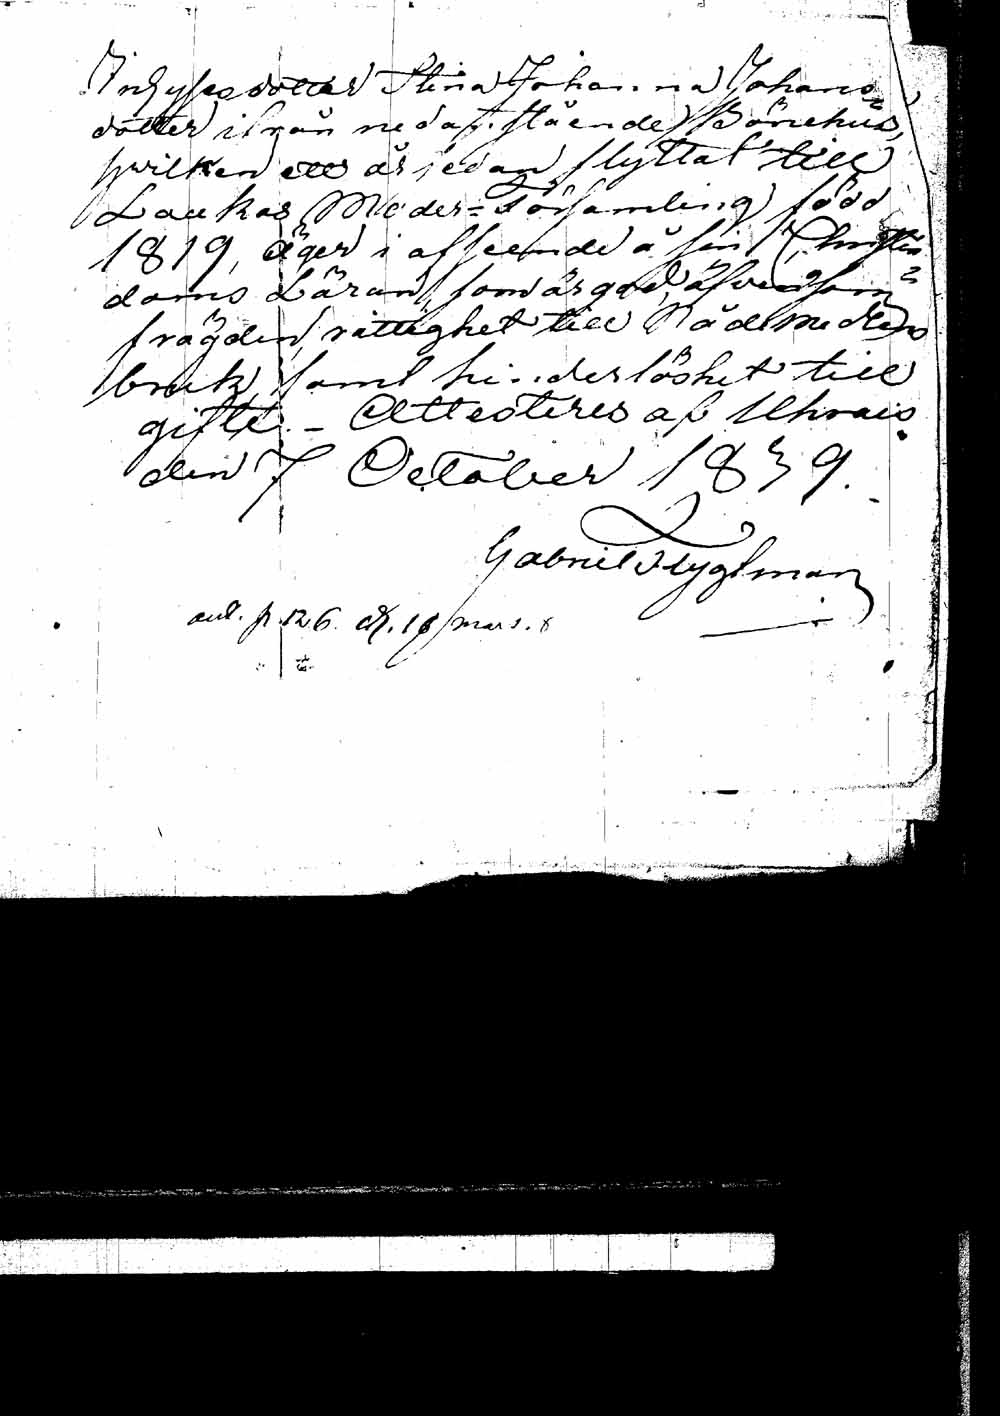 Inhysesdotter Stina Johanna Johans=
dotter ifrån nedastående Bönehus,
hvilken ett år sedan flyttat till
Laukas Moder=Församling, född
1819, äger i afseende å sin Christen=
doms Läran, som är god, äfvensom
frägden, rättighet till Nådemedlens
bruk, samt hinderlöshet till
gifte. – Attesteres af Uhrais
den 7 October 1839.
Gabriel Flygman
p. 126. 16 mars.